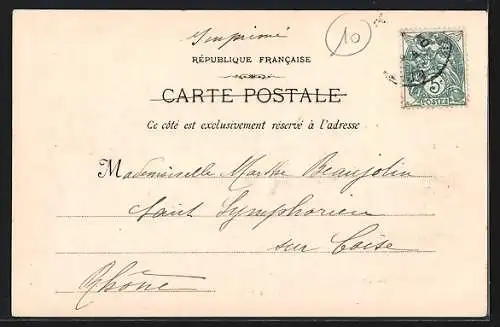 Imprimé
10
RÉPUBLIQUE FRANÇAISE
CARTE POSTALE
Ce côté est exclusivement réservé à l'adresse
Mademoiselle Marthe Beaujolin
Saint Symphorien
sur Coise
Rhône
5
POSTES